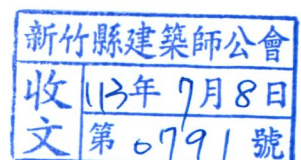 新竹縣建築師公會
收文
113年7月8日
第0791號